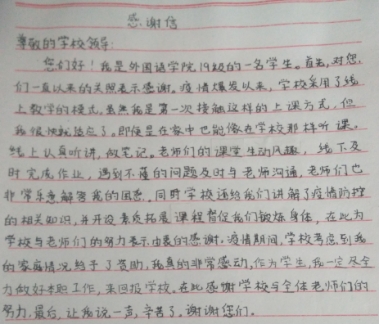 感谢信
尊敬的学校领导:
您们好!我是外国语学院19级的一名学生。首先,对您
们一直以来的关照表示感谢。疫情爆发以来,学校采用了线
上教学的模式,虽然我是第一次接触这样的上课方式,但
我很快就适应了。即使是在家中也能像在学校那样听课。
线上认真听讲,做笔记。老师们的课堂生动风趣,线下及
时完成作业,遇到不懂的问题及时与老师沟通,老师们也
非常乐意解答我的困惑。同时学校还给我们讲解了疫情防控
的相关知识,并开设素质拓展课程督促我们锻炼身体,在此为
学校与老师们的努力表示由衷的感谢。疫情期间,学校考虑到我
的家庭情况给予了资助,我真的非常感动,作为学生,我一定尽全
力做好本职工作,来回报学校。在此感谢学校与全体老师们的
努力。最后,让我说一声,辛苦了,谢谢您们。